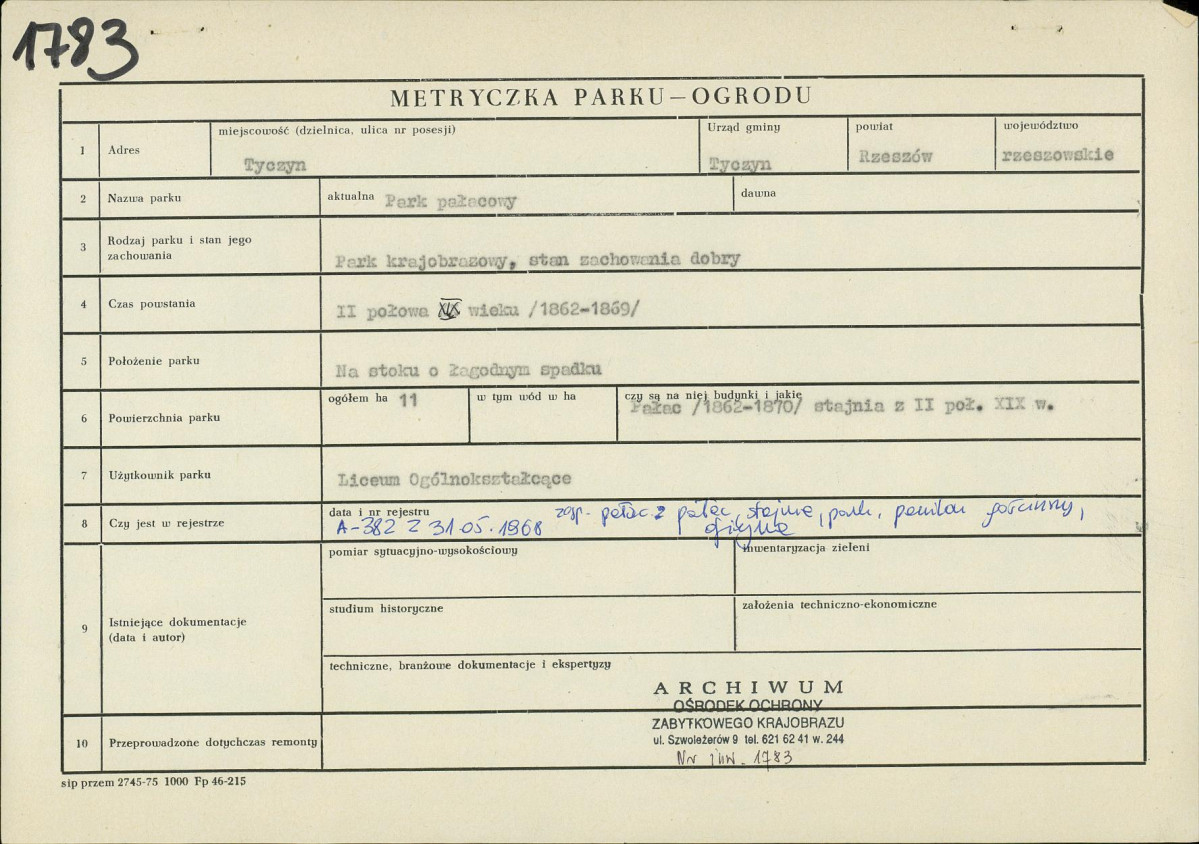 1783
METRYCZKA PARKU—OGRODU
1 Adres
miejscowość (dzielnica, ulica nr posesji)
Tyczyn
Urząd gminy
Tyczyn
powiat
Rzeszów
województwo
rzeszowskie
2 Nazwa parku
aktualna Park pałacowy
dawna
3 Rodzaj parku i stan jego
zachowania
Park krajobrazowy, stan zachowania dobry
4 Czas powstania
II połowa XIX wieku /1862-1869/
5 Położenie parku
Na stoku o łagodnym spadku
6 Powierzchnia parku
ogółem ha 11
w tym wód w ha
czy są na niej budynki i jakie
Pałac /1862-1870/ stajnia z II poł. XIX w.
7 Użytkownik parku
Liceum Ogólnokształcące
8 Czy jest w rejestrze
data i nr rejestru
A-382 z 31.05.1968
zesp. pałac. z pałac, stajnia, park, pawilon gościnny,
oficyna
9 Istniejące dokumentacje
(data i autor)
pomiar sytuacyjno-wysokościowy
inwentaryzacja zieleni
studium historyczne
założenia techniczno-ekonomiczne
techniczne, branżowe dokumentacje i ekspertyzy
10 Przeprowadzone dotychczas remonty
ARCHIWUM
OŚRODEK OCHRONY
ZABYTKOWEGO KRAJOBRAZU
ul. Szwoleżerów 9 tel. 621 62 41 w. 244
Nr inw. 1783
sip przem 2745-75 1000 Fp 46-215